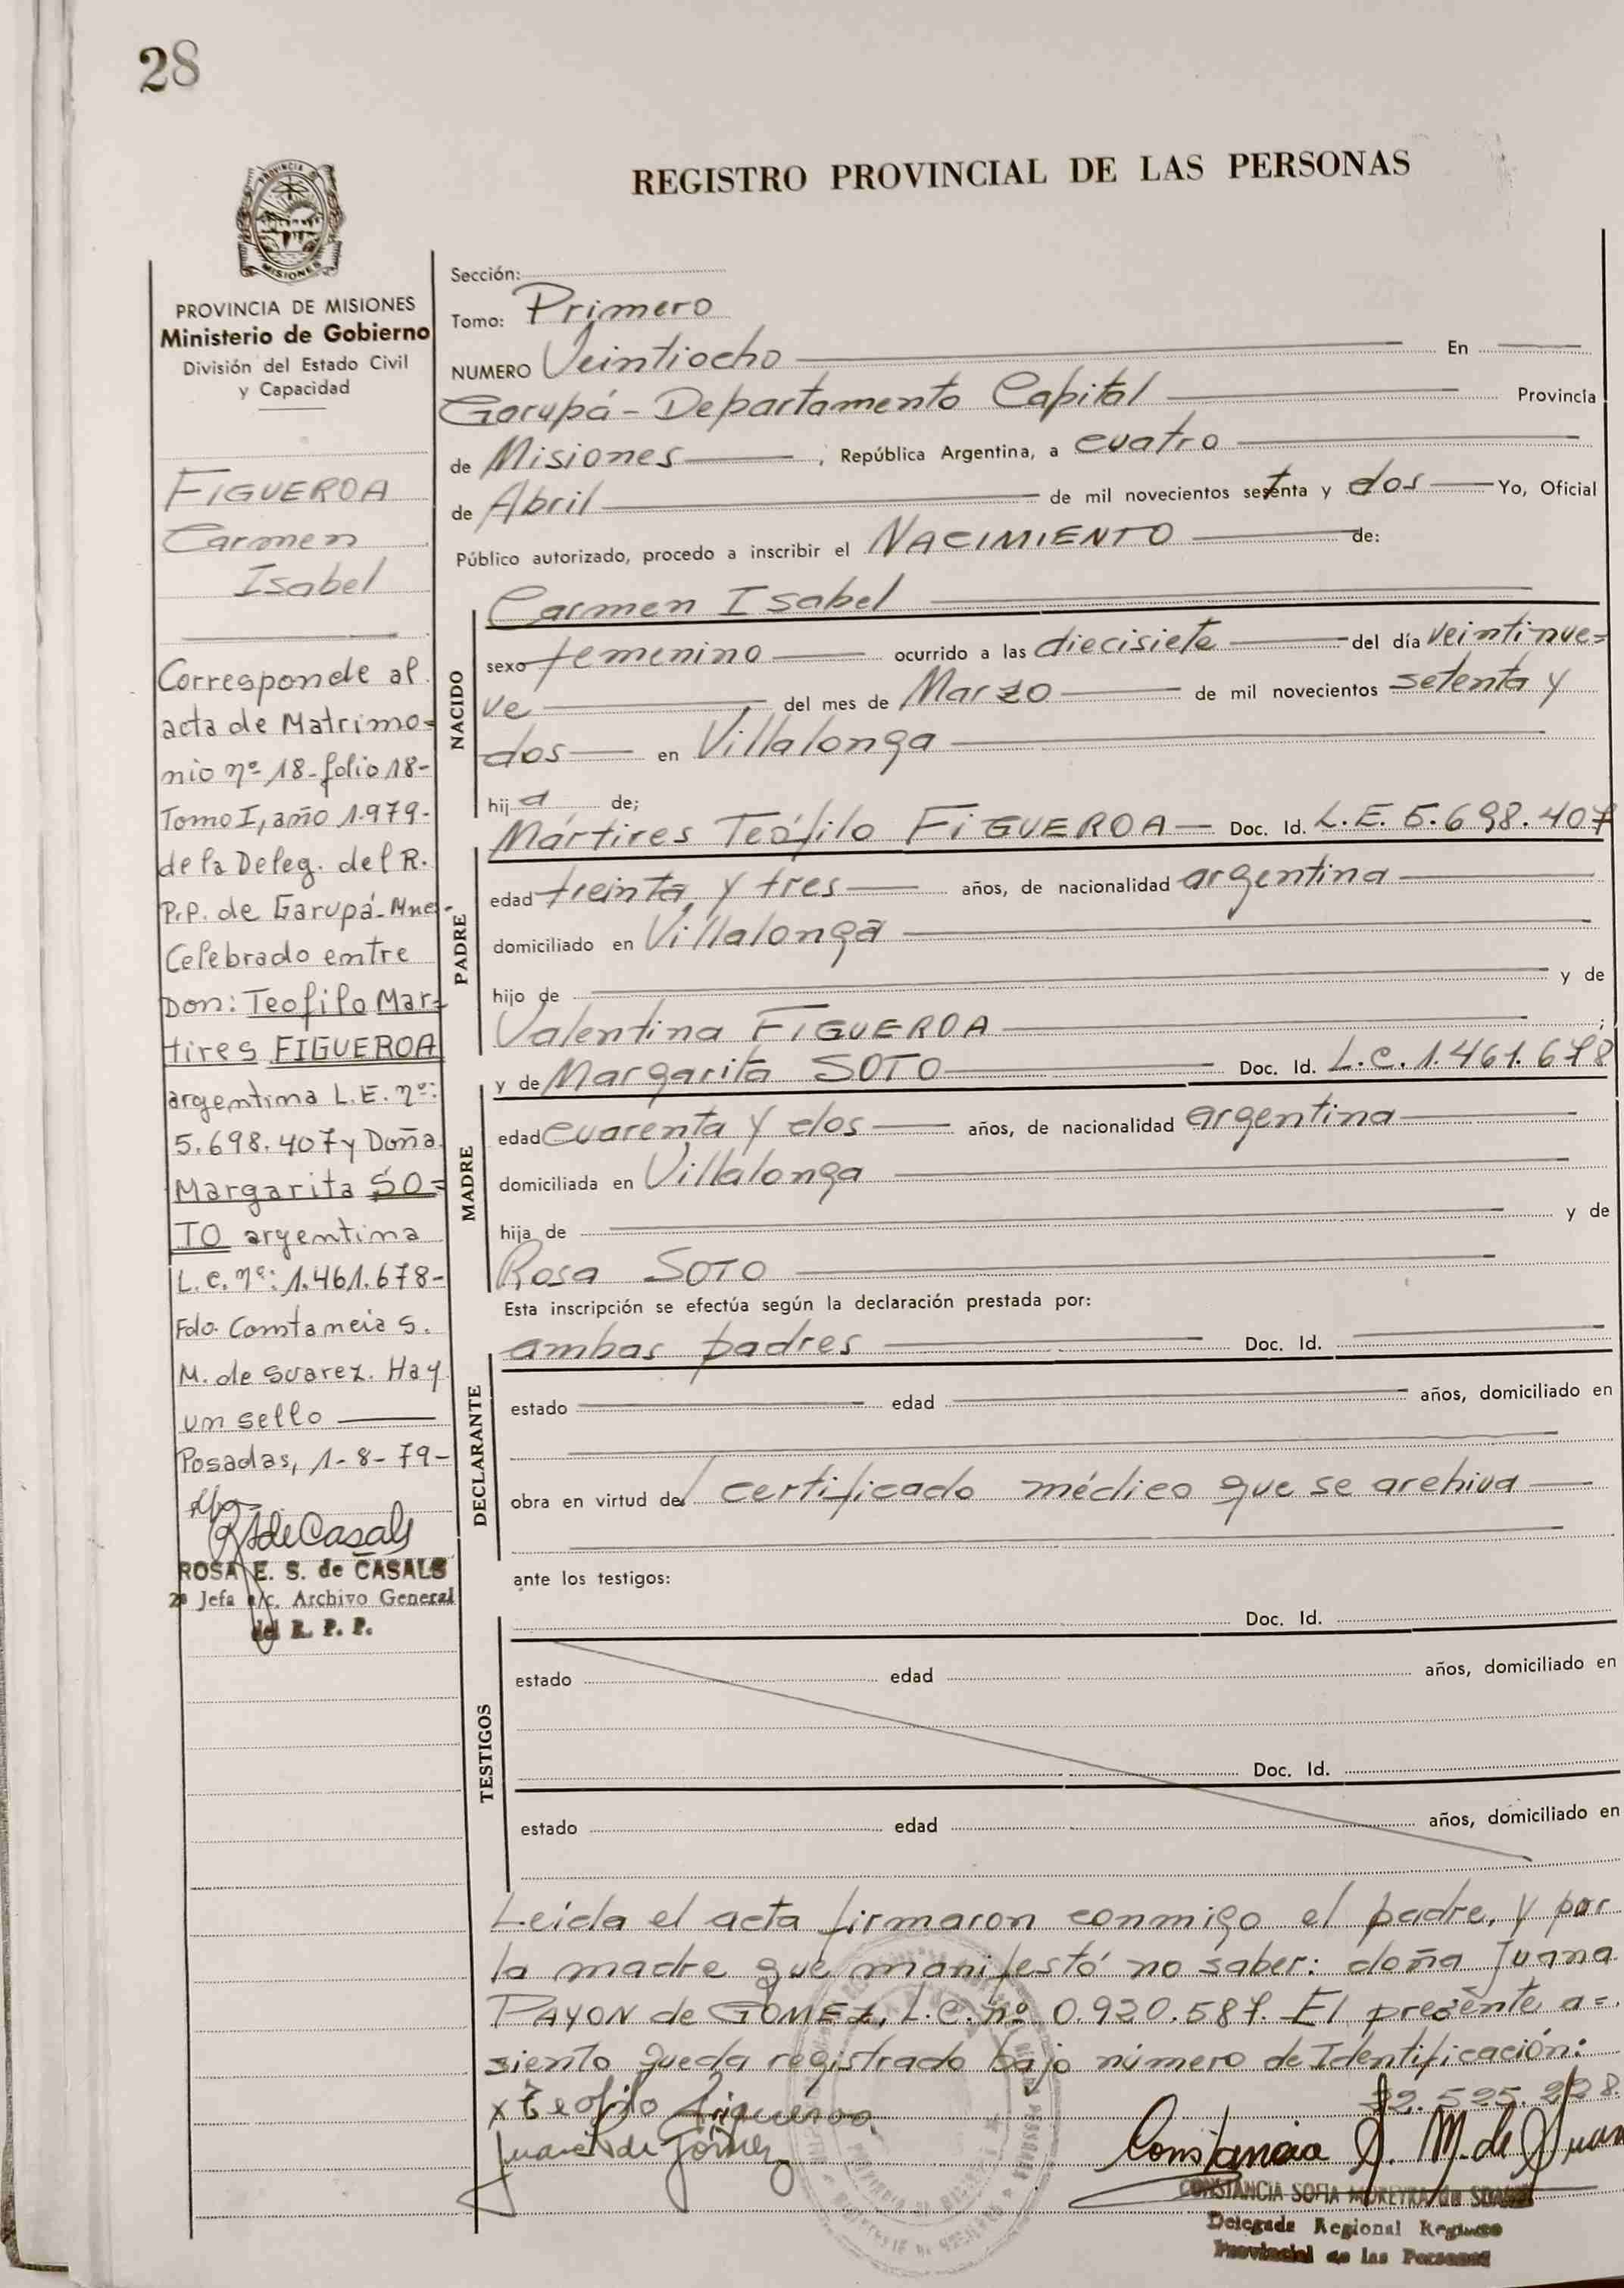 28
REGISTRO PROVINCIAL DE LAS PERSONAS
PROVINCIA DE MISIONES
Ministerio de Gobierno
División del Estado Civil
y Capacidad
FIGUEROA
Carmen
Isabel
Corresponde al
acta de Matrimo=
nio nº 18-folio 18-
Tomo I, año 1.979-
de la Deleg. del R.
P.P. de Garupá-Mnes-
Celebrado entre
Don: Teofilo Mar=
tires FIGUEROA
argentina L.E. nº:
5.698.407 y Doña
Margarita SO=
TO argentina
L.C. nº: 1.461.678-
Fdo. Constancia S.
M. de Suarez. Hay
un sello
Posadas, 1-8-79-
ROSA E. S. de CASALS
2ª Jefa a/c. Archivo General
del R. P. P.
Sección:
Tomo: Primero
NUMERO Veintiocho En
Garupá - Departamento Capital Provincia
de Misiones, República Argentina, a cuatro
de Abril de mil novecientos setenta y dos Yo, Oficial
Público autorizado, procedo a inscribir el NACIMIENTO de:
Carmen Isabel
NACIDO
sexo femenino ocurrido a las diecisiete del día veintinue=
ve del mes de Marzo de mil novecientos setenta y
dos en Villalonga
hija de;
Mártires Teófilo FIGUEROA Doc. Id. L.E. 5.698.407
PADRE
edad treinta y tres años, de nacionalidad argentina
domiciliado en Villalonga
hijo de y de
Valentina FIGUEROA ;
y de Margarita SOTO Doc. Id. L.C. 1.461.678
MADRE
edad cuarenta y dos años, de nacionalidad argentina
domiciliada en Villalonga
hija de y de
Rosa SOTO
Esta inscripción se efectúa según la declaración prestada por:
ambos padres Doc. Id.
DECLARANTE
estado edad años, domiciliado en
obra en virtud del certificado médico que se archiva
ante los testigos:
Doc. Id.
TESTIGOS
estado edad años, domiciliado en
Doc. Id.
estado edad años, domiciliado en
Leída el acta firmaron conmigo el padre, y por
la madre que manifestó no saber: doña Juana
PAYON de GOMEZ, L.C. nº 0.920.587. El presente a=
siento queda registrado bajo número de Identificación:
22.525.228.
x teofilo Figueroa
Juana de Gomez
Constancia S. M. de Suarez
CONSTANCIA SOFIA MOREYRA de SUAREZ
Delegada Regional Registro
Provincial de las Personas